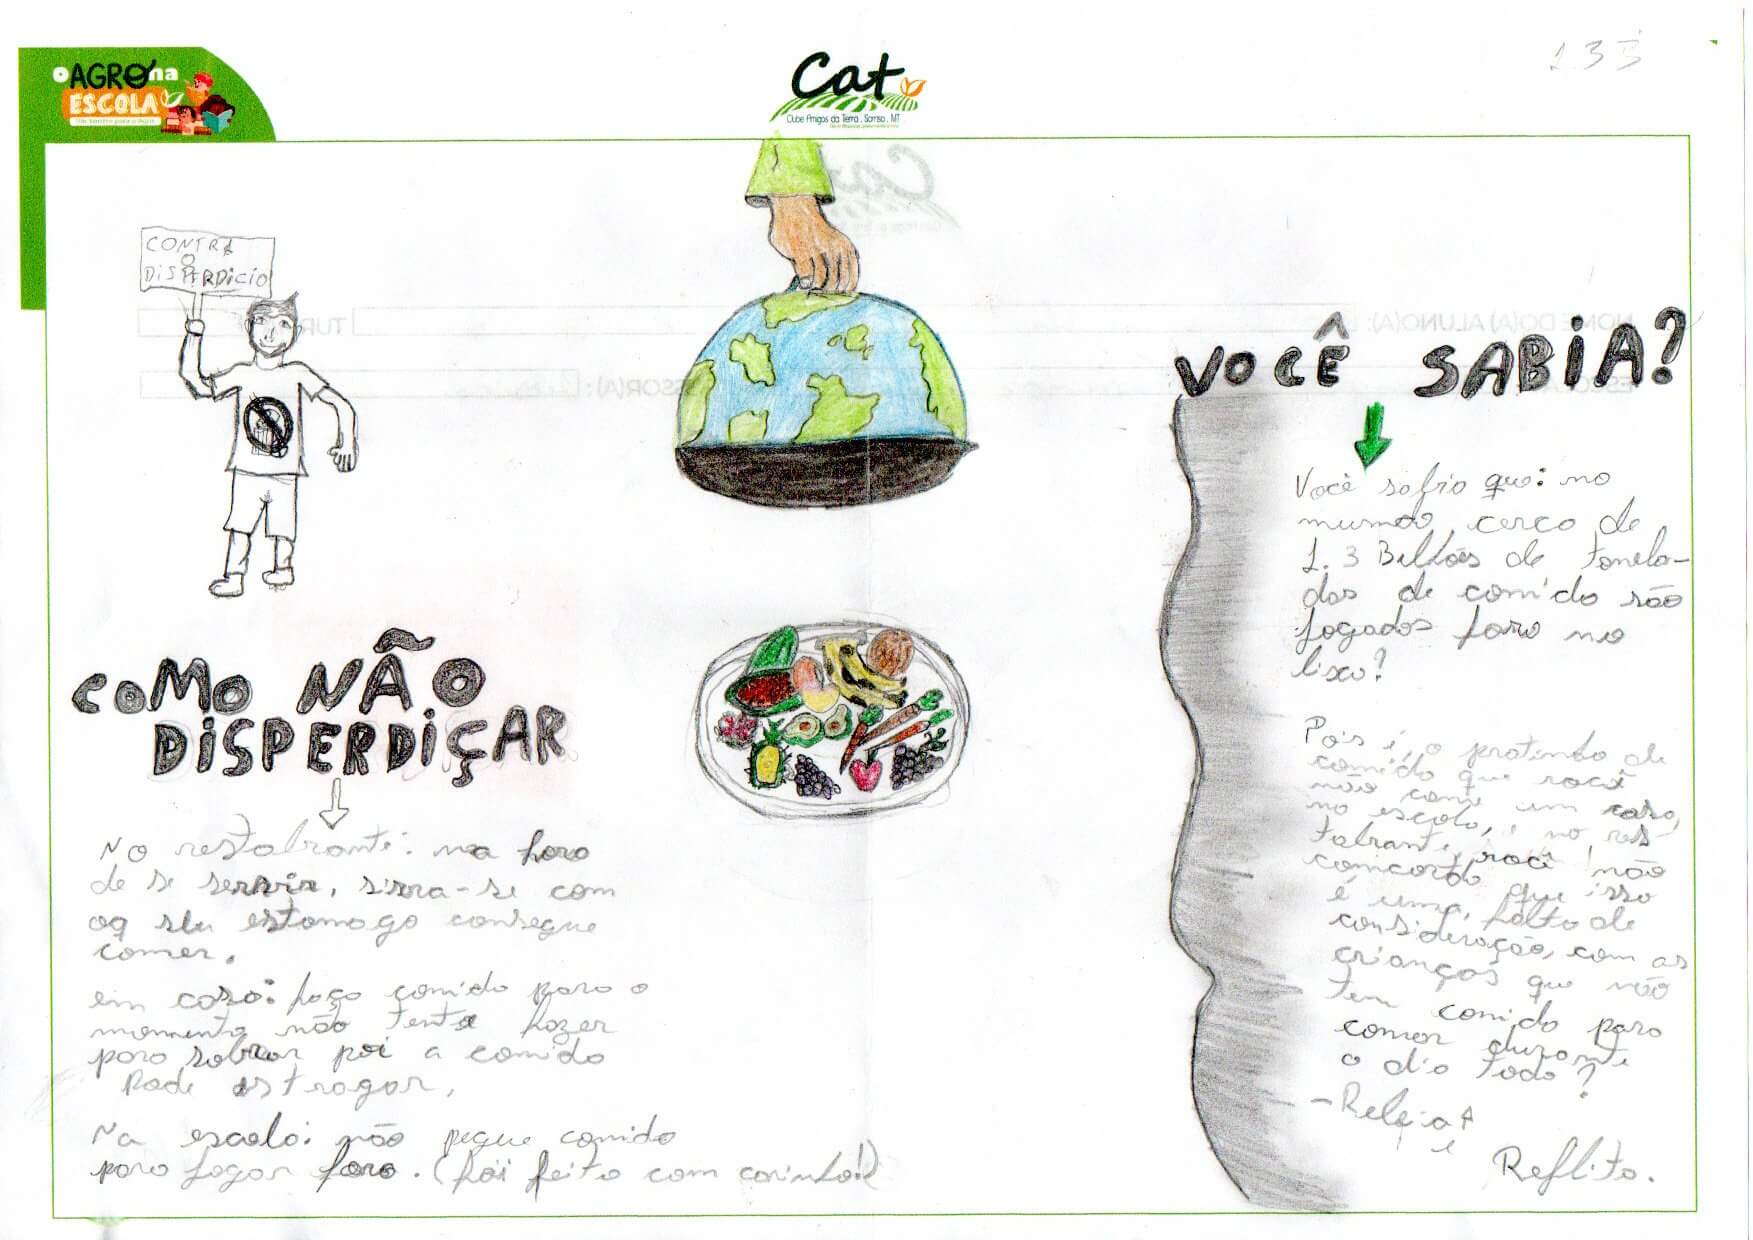 O AGRO na
ESCOLA
Cat
Clube Amigos da Terra . Sorriso . MT
133
CONTRA
O
DiSPERDiCiO
VOCÊ SABiA?
Você sabia que: no
mundo, cerca de
1.3 Bilhões de tonela-
das de comida são
jogados fora no
lixo?
Pois é, o pratinho de
comida que você
não come em casa,
na escola, e no res-
tabrante, você não
concorda que isso
é uma, falta de
consideração, com as
crianças que não
tem comida para
comer durante
o dia todo?
- Releia
e
Reflita.
COMO NÃO
DiSPERDiÇAR
No restabrante: na hora
de se servir, sirva-se com
oq seu estomago consegue
comer.
em casa: faça comida para o
momento não tente fazer
para sobrar poi a comida
pode estragar.
Na escola: não pegue comida
para jogar fora. (foi feito com carinho!)
NOME DO(A) ALUNO(A):
TURMA
ESSOR(A):